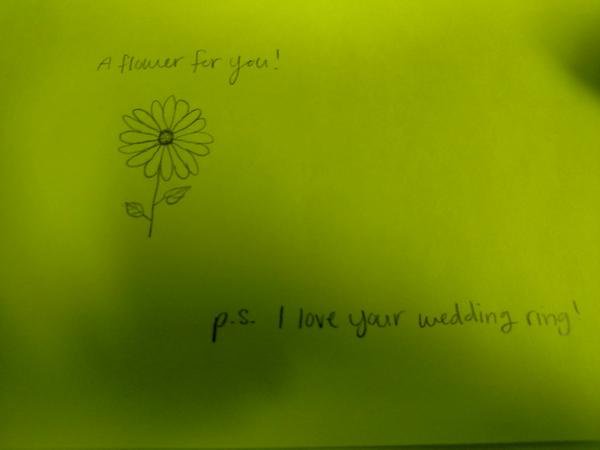 A flower for you!
p.s. I love your wedding ring!